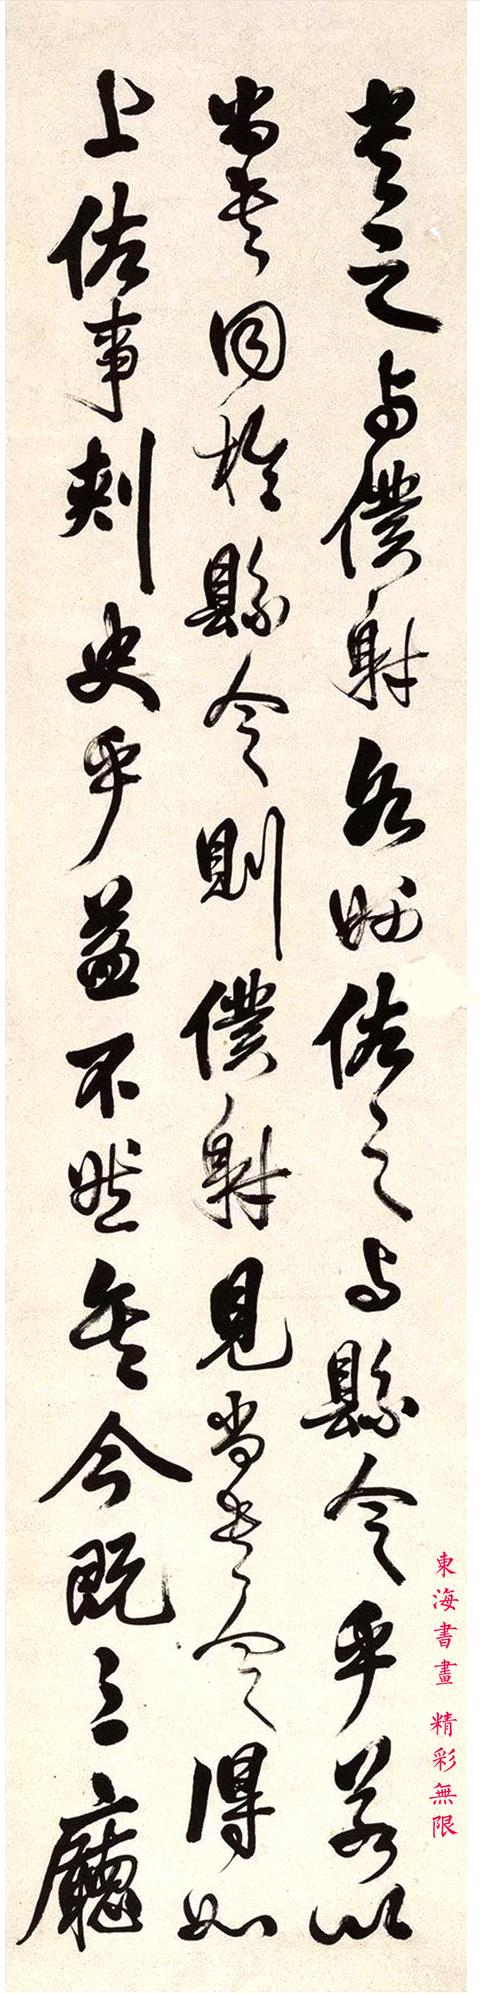 書之与僕射若州佐之与縣令乎若以
尚書同於縣令則僕射見尚書令得如
上佐事刺史乎益不然矣今既三廳
東海書畫 精彩無限